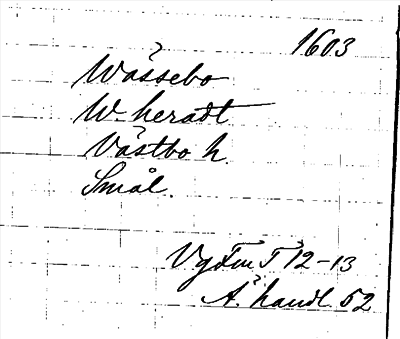 1603
Wåssebo
W. heradt
Västbo h.
Smål.
Vg Fm T 12-13
Ä. handl. 52